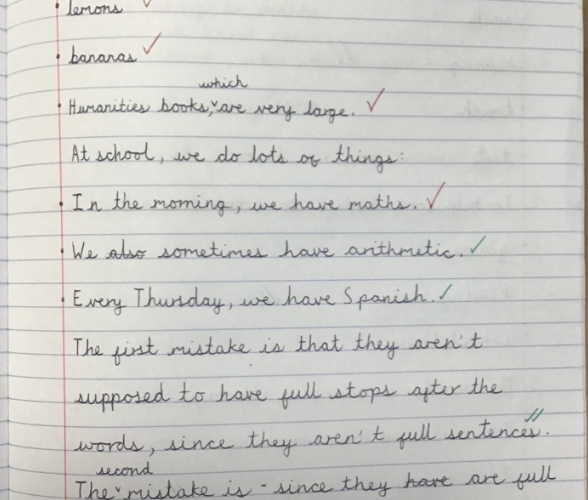 • lemons ✓
• bananas ✓
which
• Humanities books, ˅are very large. ✓
At school, we do lots of things:
• In the morning, we have maths. ✓
• We also sometimes have arithmetic. ✓
• Every Thursday, we have Spanish. ✓
The first mistake is that they aren't
supposed to have full stops after the
words, since they aren't full sentences.
second
The ˅mistake is - since they have are full